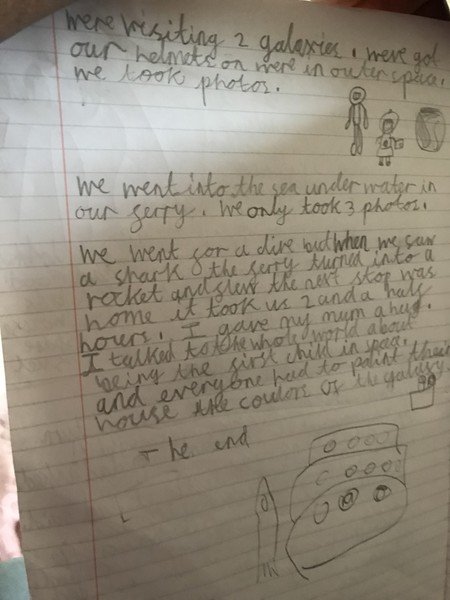 were visiting 2 galaxies. weve got
our helmets on were in outer space.
we took photos.
we went into the sea under water in
our ferry. we only took 3 photos.
we went for a dive but when we saw
a shark the ferry turned into a
rocket and flew the next stop was
home it took us 2 and a half
hours. I gave my mum a hug.
I talked to the whole world about
being the first child in space.
and everyone had to paint their
house the coulors of the galaxy
The end